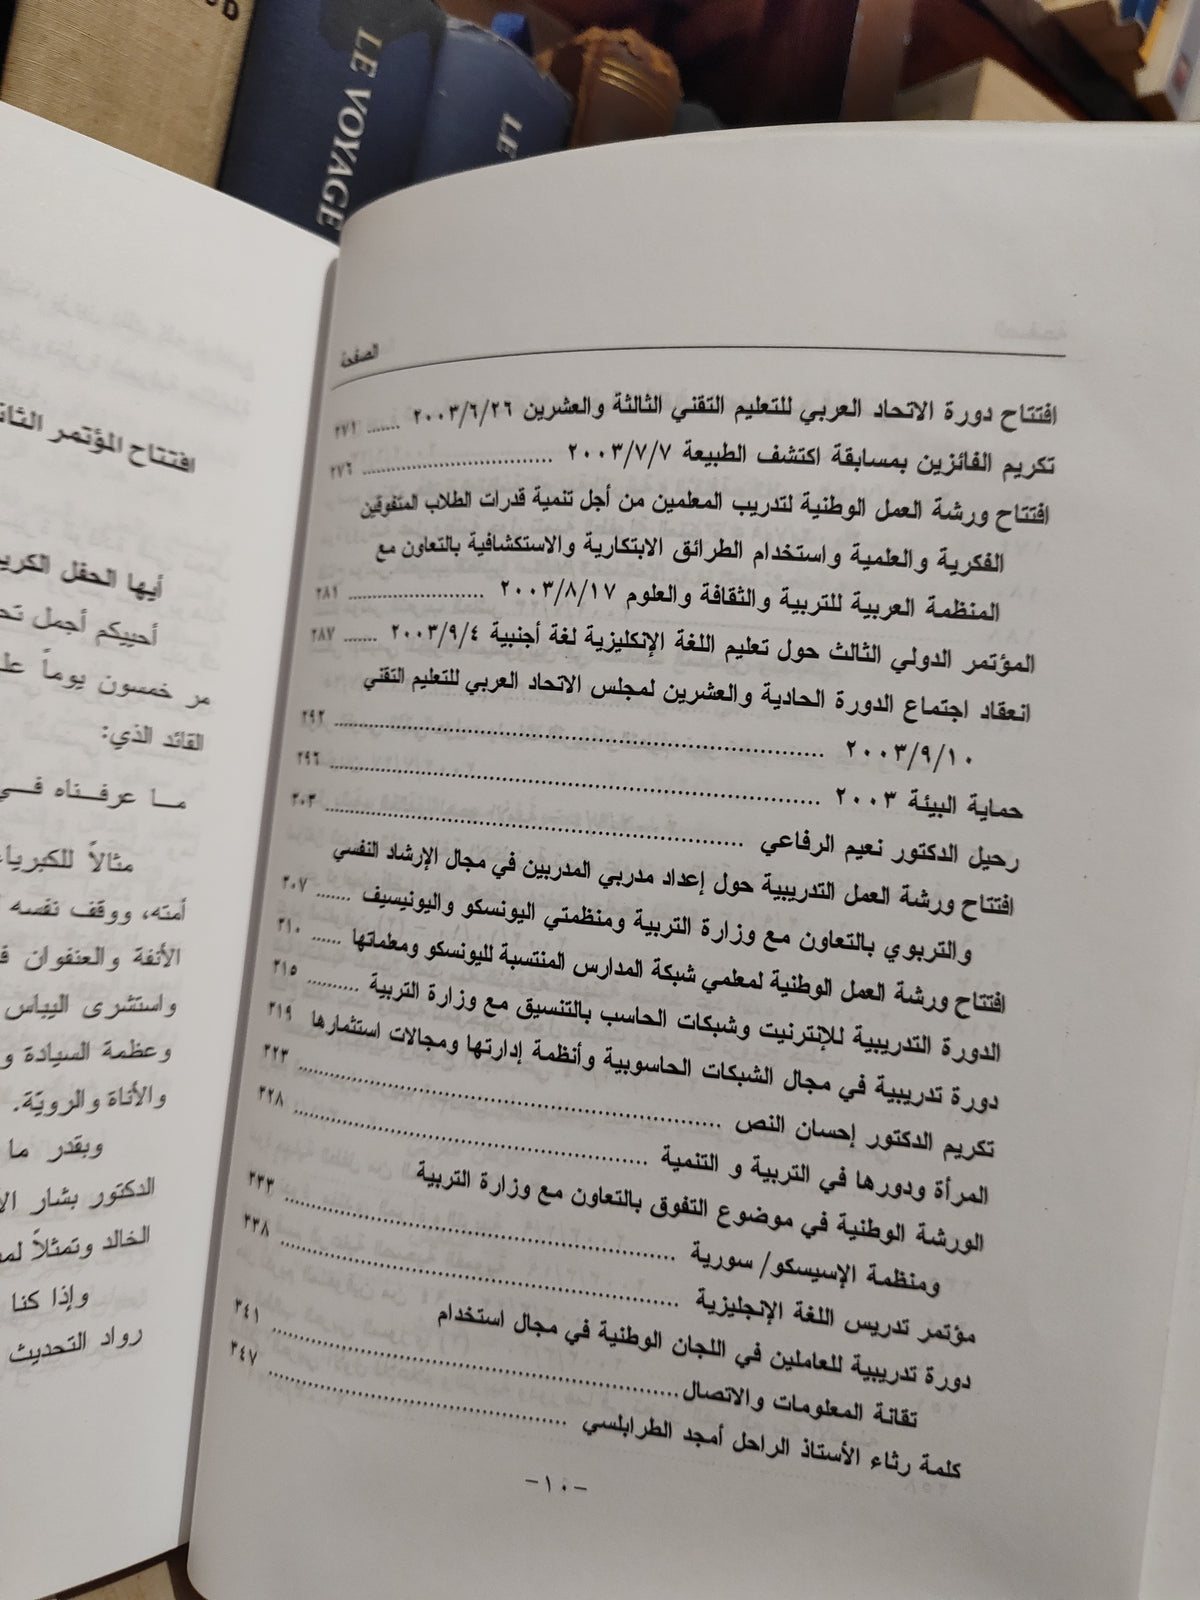 LE VOYAGE
LE
الصفحة
افتتاح دورة الاتحاد العربي للتعليم التقني الثالثة والعشرين ٢٠٠٣/٦/٢٦ ...... ٢٧١
تكريم الفائزين بمسابقة اكتشف الطبيعة ٢٠٠٣/٧/٧ ...... ٢٧٦
افتتاح ورشة العمل الوطنية لتدريب المعلمين من أجل تنمية قدرات الطلاب المتفوقين
الفكرية والعلمية واستخدام الطرائق الابتكارية والاستكشافية بالتعاون مع
المنظمة العربية للتربية والثقافة والعلوم ٢٠٠٣/٨/١٧ ...... ٢٨١
المؤتمر الدولي الثالث حول تعليم اللغة الإنكليزية لغة أجنبية ٢٠٠٣/٩/٤ ...... ٢٨٧
انعقاد اجتماع الدورة الحادية والعشرين لمجلس الاتحاد العربي للتعليم التقني
٢٠٠٣/٩/١٠ ...... ٢٩٢
حماية البيئة ٢٠٠٣ ...... ٢٩٦
رحيل الدكتور نعيم الرفاعي ...... ٣٠٣
افتتاح ورشة العمل التدريبية حول إعداد مدربي المدربين في مجال الإرشاد النفسي
والتربوي بالتعاون مع وزارة التربية ومنظمتي اليونسكو واليونيسيف ...... ٣٠٧
افتتاح ورشة العمل الوطنية لمعلمي شبكة المدارس المنتسبة لليونسكو ومعلماتها ...... ٣١٠
الدورة التدريبية للإنترنيت وشبكات الحاسب بالتنسيق مع وزارة التربية ...... ٣١٥
دورة تدريبية في مجال الشبكات الحاسوبية وأنظمة إدارتها ومجالات استثمارها ٣١٩
تكريم الدكتور إحسان النص ...... ٣٢٣
المرأة ودورها في التربية و التنمية ...... ٣٢٨
الورشة الوطنية في موضوع التفوق بالتعاون مع وزارة التربية
ومنظمة الإسيسكو/ سورية ...... ٣٣٣
مؤتمر تدريس اللغة الإنجليزية ...... ٣٣٨
دورة تدريبية للعاملين في اللجان الوطنية في مجال استخدام
تقانة المعلومات والاتصال ...... ٣٤١
كلمة رثاء الأستاذ الراحل أمجد الطرابلسي ...... ٣٤٧
-١٠-
افتتاح المؤتمر
أيها الحفل
أحييكم أجمل
مر خمسون يوماً
القائد الذي:
مـا عرفـناه فـي
مثالاً للكبرياء
أمته، ووقف نفسه
الأنفة والعنفوان
واستشرى اليباس
وعظمة السيادة
والأناة والرويّة.
وبقدر ما
الدكتور بشار
الخالد وتمثلاً
وإذا كنا
رواد التحديث